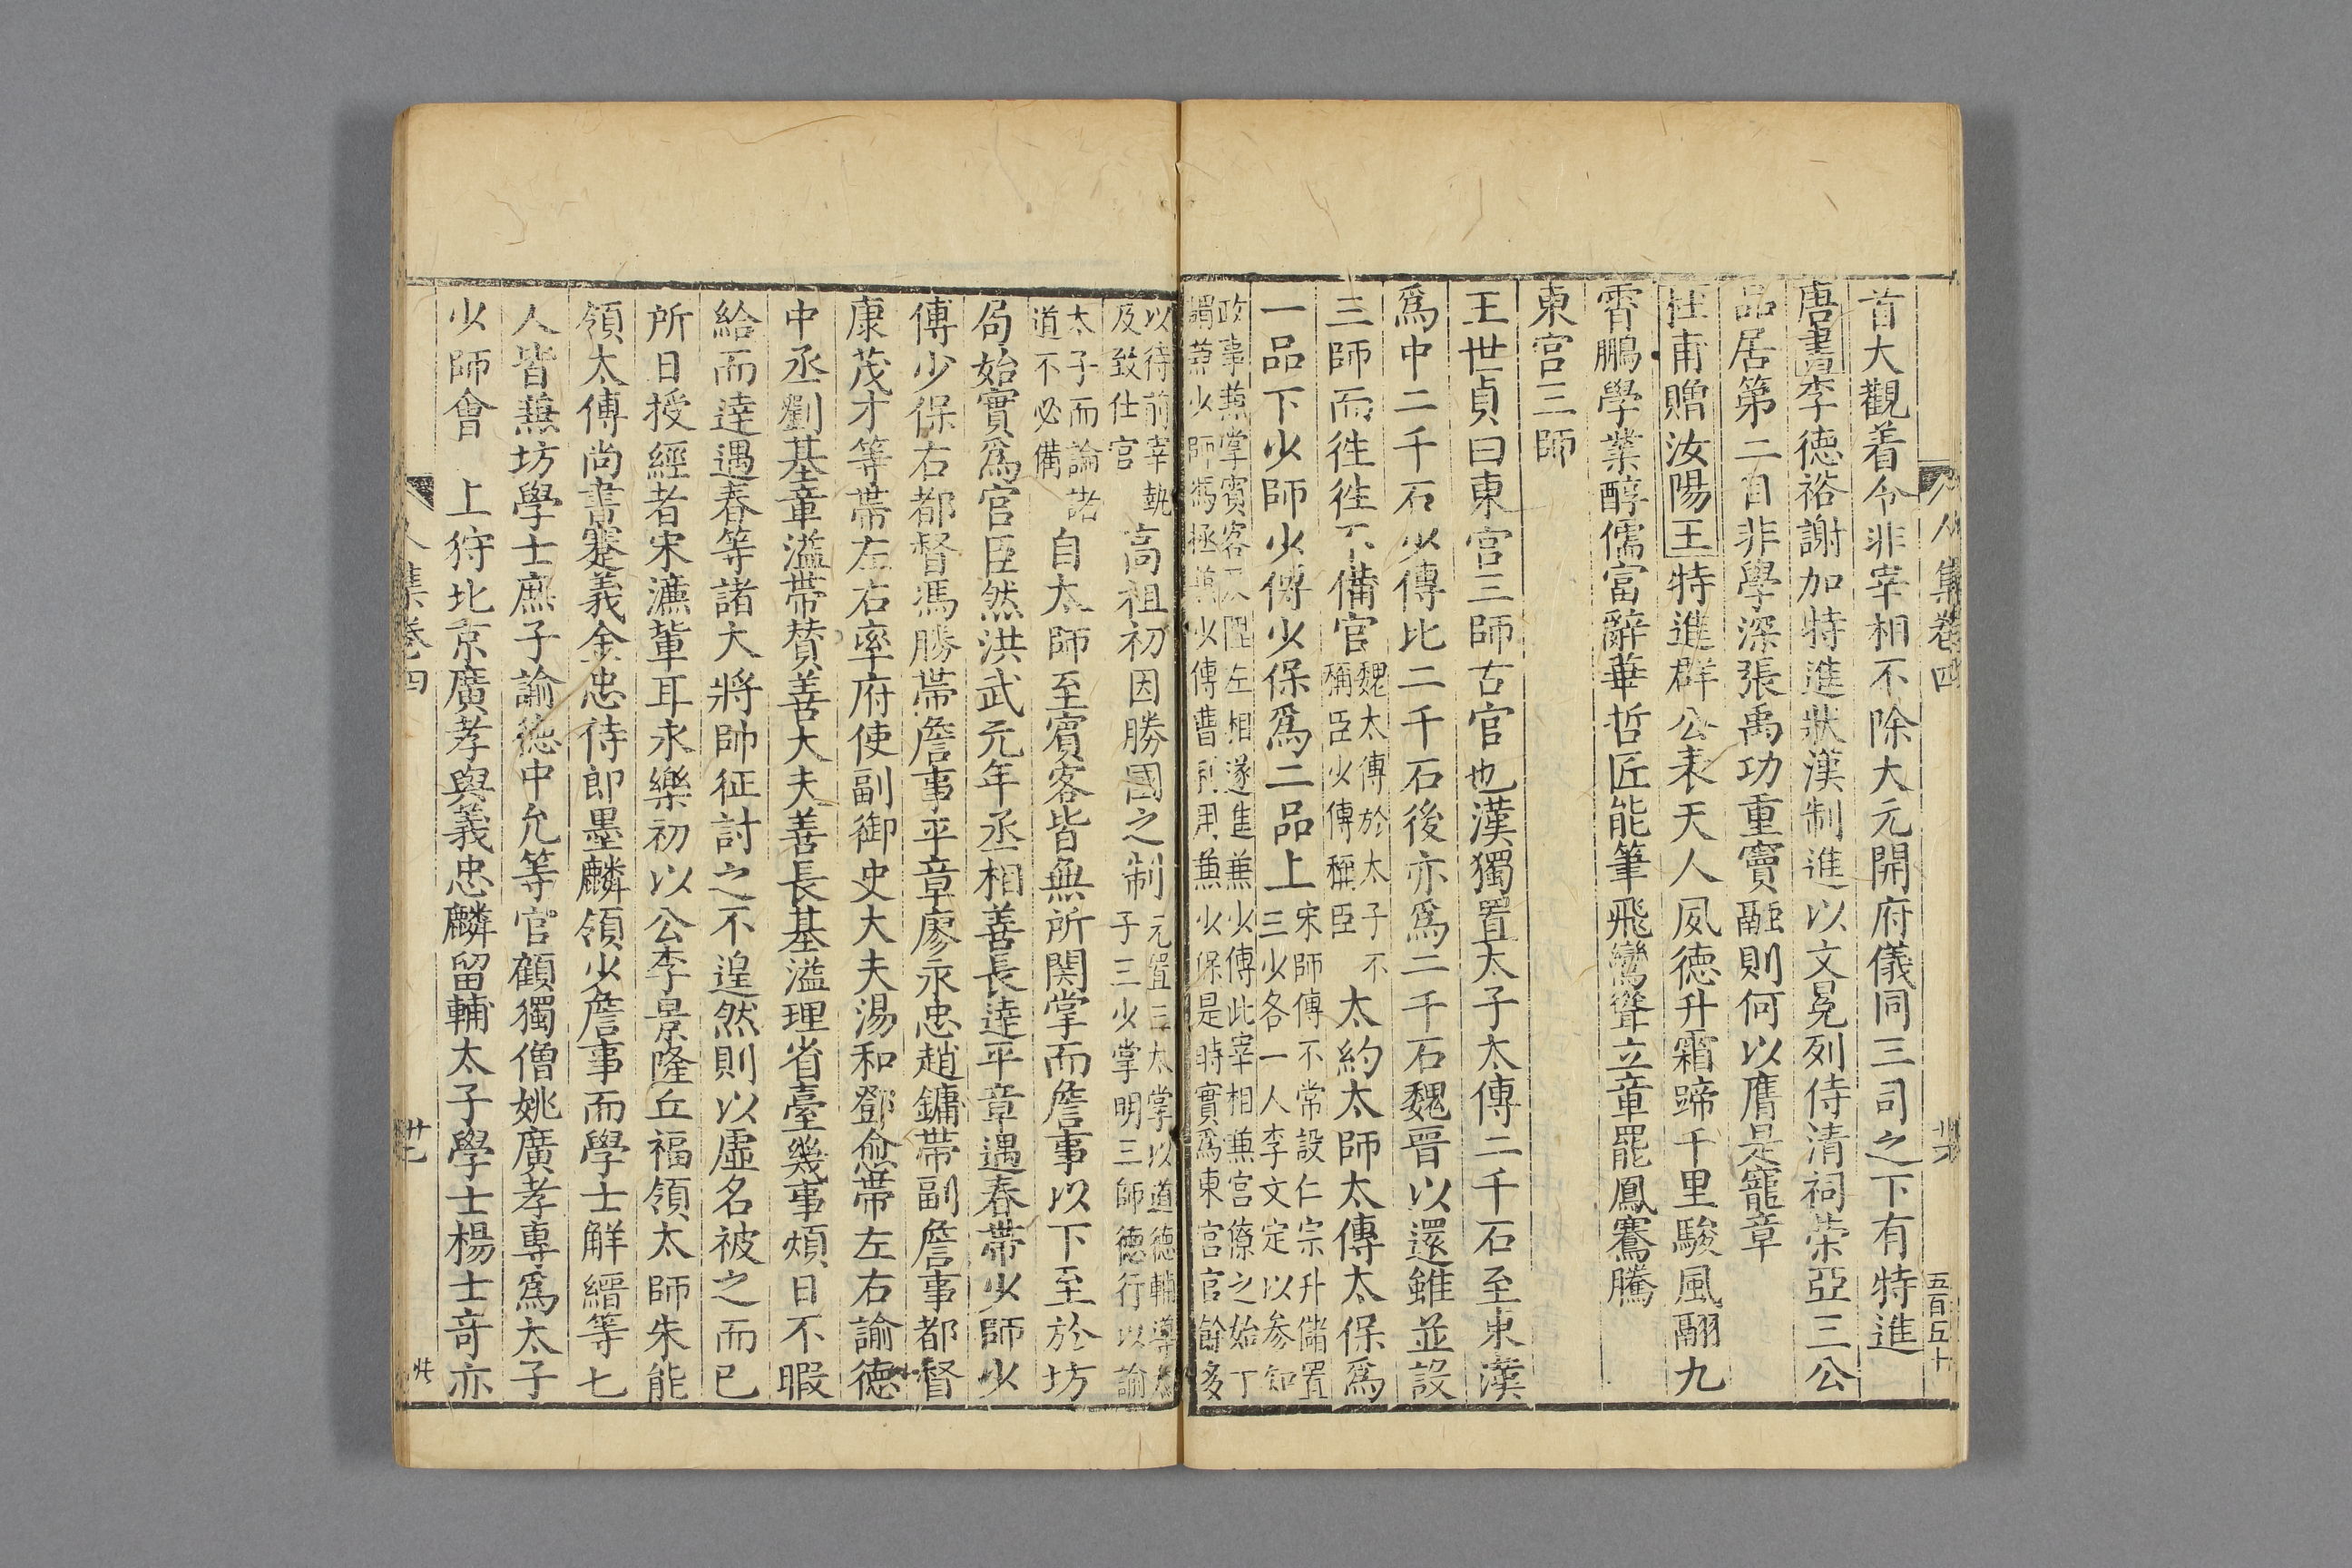 集卷四
五百五十
首大觀着令非宰相不除大元開府儀同三司之下有特進
唐書李德裕謝加特進狀漢制進以文冕列侍清祠荣亞三公
品居第二自非學深張禹功重竇融則何以膺是寵章
甫贈汝陽王特進群公表天人夙德升霜蹄千里駿風翮九
霄鵬學業醇儒富辭華哲匠能筆飛鸞聳立章罷鳳騫騰
東宮三師
王世貞曰東宮三師古官也漢獨置太子太傅二千石至東漢
爲中二千石少傅比二千石後亦爲二千石魏晋以還雖並設
三師而徃徃不備官
魏太傅於太子不
稱臣少傅稱臣
太約太師太傅太保爲
一品下少師少傅少保爲二品上
宋師傅不常設仁宗升儲置
三少各一人李文定以参知
政事兼掌賓客及陞左相遂進兼少傅此宰相兼宮僚之始丁
謂兼少師馮拯兼少傅曹利用兼少保是時實爲東宮官餘多
以待前宰執
及致仕官
高祖初因勝國之制
元置三太掌以道德輔導太
子三少掌明三師德行以諭
太子而論諸
道不必備
自太師至賓客皆無所関掌而詹事以下至於坊
局始實爲官臣然洪武元年丞相善長逹平章遇春帶少師少
傅少保右都督馮勝帶詹事平章廖永忠趙鏞帶副詹事都督
康茂才等帶左右率府使副御史大夫湯和鄧愈帶左右諭德
中丞劉基章溢帶賛善大夫善長基溢理省臺幾事煩日不暇
給而逹遇春等諸大將帥征討之不遑然則以虛名被之而已
所日授經者宋濂輩耳永樂初以公李景隆丘福領太師朱能
領太傅尚書蹇義金忠侍郎墨麟領少詹事而學士解縉等七
人皆兼坊學士庶子諭德中允等官顧獨僧姚廣孝專爲太子
少師會　上狩北京廣孝與義忠麟留輔太子學士楊士竒亦
集卷四